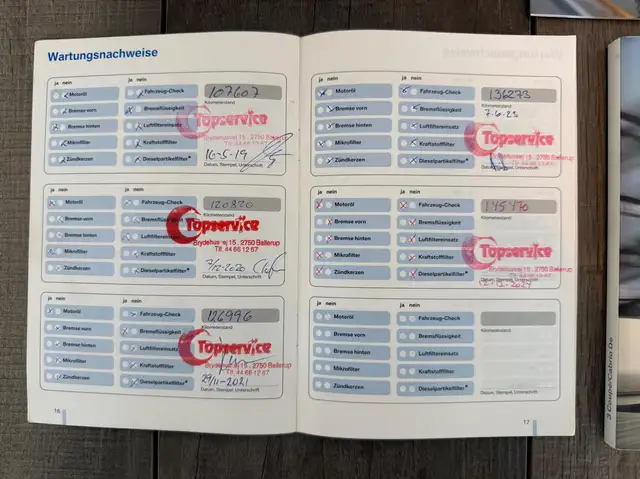 Wartungsnachweise
ja nein
ja nein
Motoröl
Fahrzeug-Check
107607
Kilometerstand
Bremse vorn
Bremsflüssigkeit
Topservice
Bremse hinten
Luftfiltereinsatz
Brydehusvej 15 . 2750 Ballerup
Tlf. 44 66 12 67
Mikrofilter
Kraftstofffilter
16-5-19
Zündkerzen
Dieselpartikelfilter*
Datum, Stempel, Unterschrift
ja nein
ja nein
Motoröl
Fahrzeug-Check
120820
Kilometerstand
Bremse vorn
Bremsflüssigkeit
Topservice
Bremse hinten
Luftfiltereinsatz
Brydehusvej 15 . 2750 Ballerup
Tlf. 44 66 12 67
Mikrofilter
Kraftstofffilter
Zündkerzen
Dieselpartikelfilter*
Datum, Stempel, Unterschrift
ja nein
ja nein
Motoröl
Fahrzeug-Check
126996
Kilometerstand
Bremse vorn
Bremsflüssigkeit
Topservice
Bremse hinten
Luftfiltereinsatz
Brydehusvej 15 . 2750 Ballerup
Tlf. 44 66 12 67
Mikrofilter
Kraftstofffilter
29/11-2021
Zündkerzen
Dieselpartikelfilter*
Datum, Stempel, Unterschrift
16
ja nein
ja nein
Motoröl
Fahrzeug-Check
136273
Kilometerstand
7-6-23
Bremse vorn
Bremsflüssigkeit
Topservice
Bremse hinten
Luftfiltereinsatz
Brydehusvej 15 . 2750 Ballerup
Tlf. 44 66 12 67
Mikrofilter
Kraftstofffilter
Zündkerzen
Dieselpartikelfilter*
Datum, Stempel, Unterschrift
ja nein
ja nein
Motoröl
Fahrzeug-Check
145470
Kilometerstand
Bremse vorn
Bremsflüssigkeit
Topservice
Bremse hinten
Luftfiltereinsatz
Brydehusvej 15 . 2750 Ballerup
Tlf. 44 66 12 67
Mikrofilter
Kraftstofffilter
Zündkerzen
Dieselpartikelfilter*
Datum, Stempel, Unterschrift
12-12-2024
ja nein
ja nein
Motoröl
Fahrzeug-Check
Kilometerstand
Bremse vorn
Bremsflüssigkeit
Bremse hinten
Luftfiltereinsatz
Mikrofilter
Kraftstofffilter
Zündkerzen
Dieselpartikelfilter*
Datum, Stempel, Unterschrift
17
3 Coupé/Cabrio De